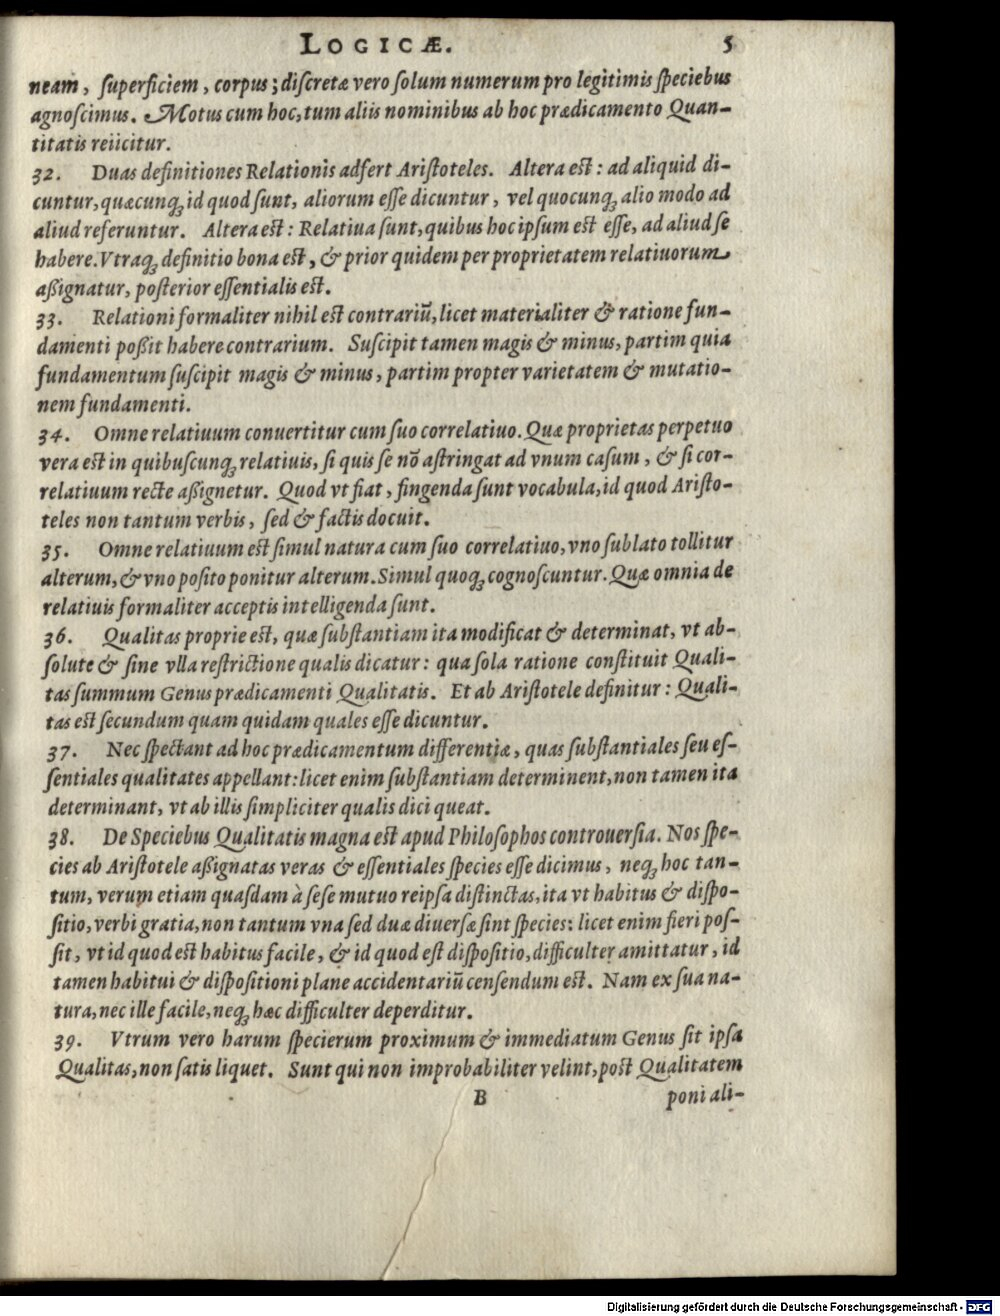 LOGICÆ. 5
neam, ſuperficiem, corpus; diſcretæ vero ſolum numerum pro legitimis ſpeciebus
agnoſcimus. Motus cum hoc, tum aliis nominibus ab hoc prædicamento Quan-
titatis reiicitur.
32. Duas definitiones Relationis adfert Ariſtoteles. Altera eſt: ad aliquid di-
cuntur, quæcunq; id quod ſunt, aliorum eſſe dicuntur, vel quocunq; alio modo ad
aliud referuntur. Altera eſt: Relatiua ſunt, quibus hoc ipſum eſt eſſe, ad aliud ſe
habere. Vtraq; definitio bona eſt, & prior quidem per proprietatem relatiuorum
aßignatur, poſterior eſſentialis eſt.
33. Relationi formaliter nihil eſt contrariũ, licet materialiter & ratione fun-
damenti poßit habere contrarium. Suſcipit tamen magis & minus, partim quia
fundamentum ſuſcipit magis & minus, partim propter varietatem & mutatio-
nem fundamenti.
34. Omne relatiuum conuertitur cum ſuo correlatiuo. Quæ proprietas perpetuo
vera eſt in quibuſcunq; relatiuis, ſi quis ſe nõ aſtringat ad vnum caſum, & ſi cor-
relatiuum recte aßignetur. Quod vt fiat, fingenda ſunt vocabula, id quod Ariſto-
teles non tantum verbis, ſed & factis docuit.
35. Omne relatiuum eſt ſimul natura cum ſuo correlatiuo, vno ſublato tollitur
alterum, & vno poſito ponitur alterum. Simul quoq; cognoſcuntur. Quæ omnia de
relatiuis formaliter acceptis intelligenda ſunt.
36. Qualitas proprie eſt, quæ ſubſtantiam ita modificat & determinat, vt ab-
ſolute & ſine vlla reſtrictione qualis dicatur: qua ſola ratione conſtituit Quali-
tas ſummum Genus prædicamenti Qualitatis. Et ab Ariſtotele definitur: Quali-
tas eſt ſecundum quam quidam quales eſſe dicuntur.
37. Nec ſpectant ad hoc prædicamentum differentiæ, quas ſubſtantiales ſeu eſ-
ſentiales qualitates appellant: licet enim ſubſtantiam determinent, non tamen ita
determinant, vt ab illis ſimpliciter qualis dici queat.
38. De Speciebus Qualitatis magna eſt apud Philoſophos controuerſia. Nos ſpe-
cies ab Ariſtotele aßignatas veras & eſſentiales ſpecies eſſe dicimus, neq; hoc tan-
tum, verum etiam quaſdam à ſeſe mutuo reipſa diſtinctas, ita vt habitus & diſpo-
ſitio, verbi gratia, non tantum vna ſed duæ diuerſæ ſint ſpecies: licet enim fieri poſ-
ſit, vt id quod eſt habitus facile, & id quod eſt diſpoſitio, difficulter amittatur, id
tamen habitui & diſpoſitioni plane accidentariũ cenſendum eſt. Nam ex ſua na-
tura, nec ille facile, neq; hæc difficulter deperditur.
39. Vtrum vero harum ſpecierum proximum & immediatum Genus ſit ipſa
Qualitas, non ſatis liquet. Sunt qui non improbabiliter velint, poſt Qualitatem
B poni ali-
Digitalisierung gefördert durch die Deutsche Forschungsgemeinschaft - DFG